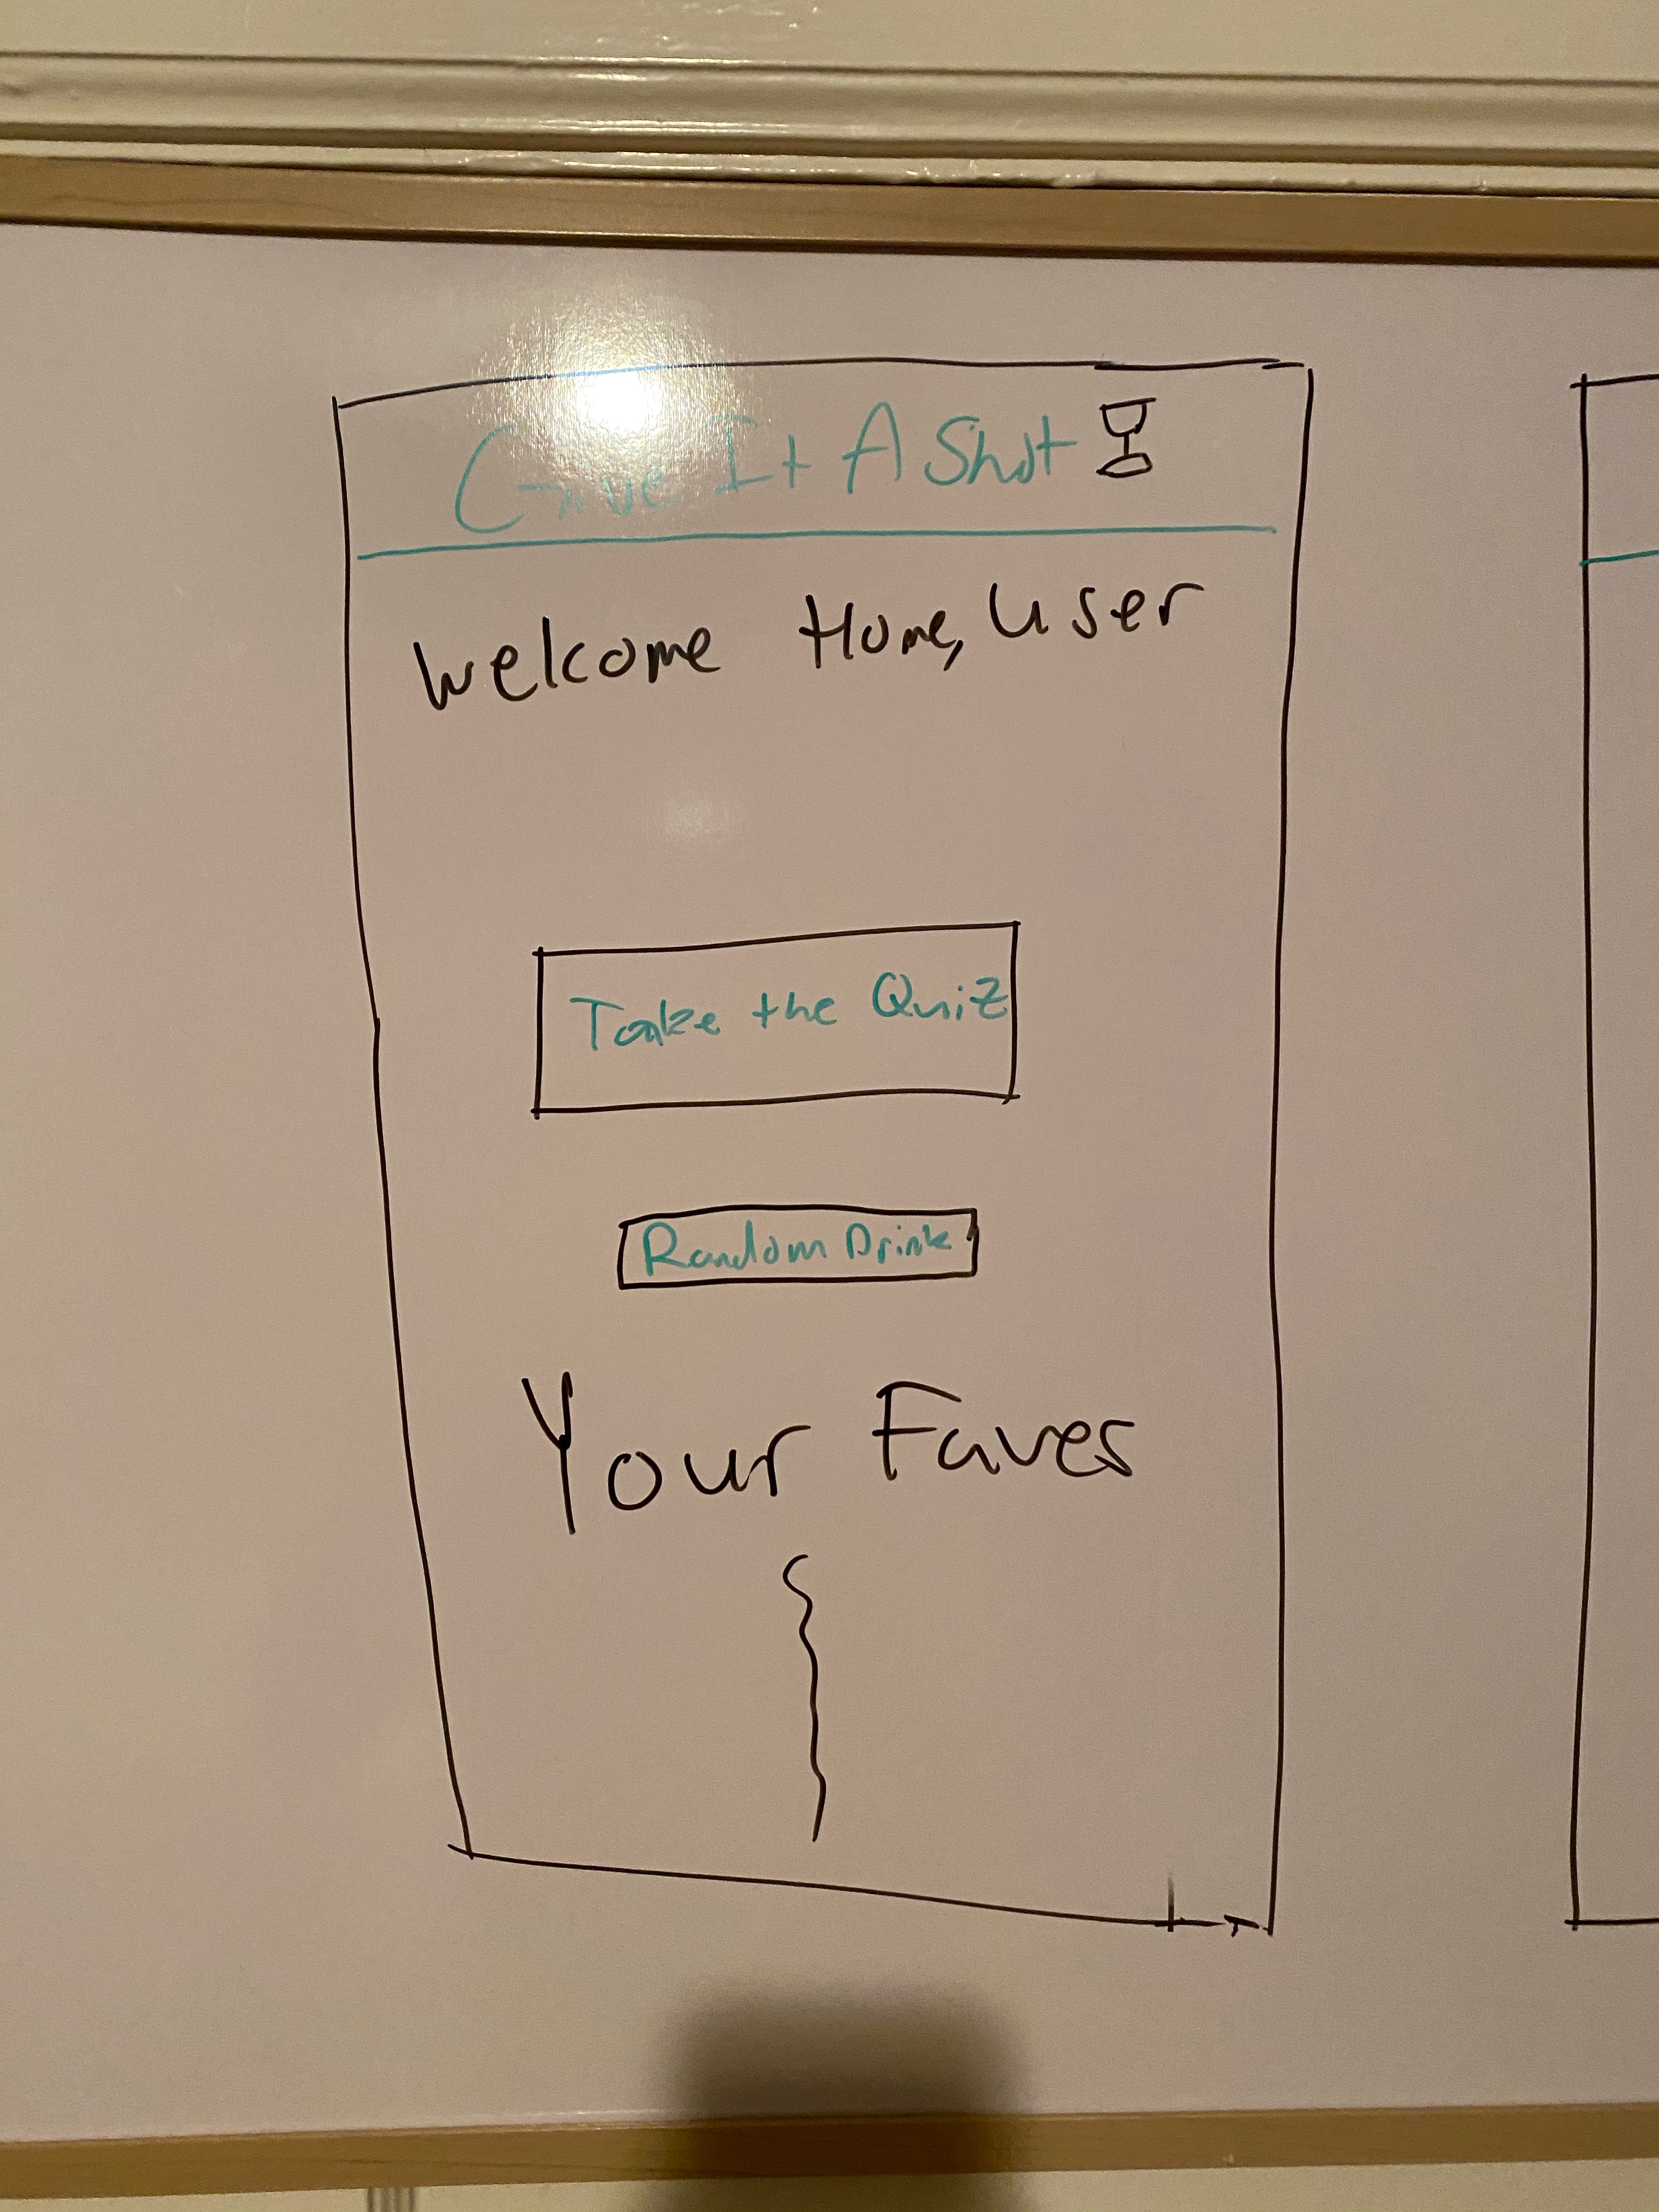 Give It A Shot
Welcome Home, User
Take the Quiz
Random Drink
Your Faves